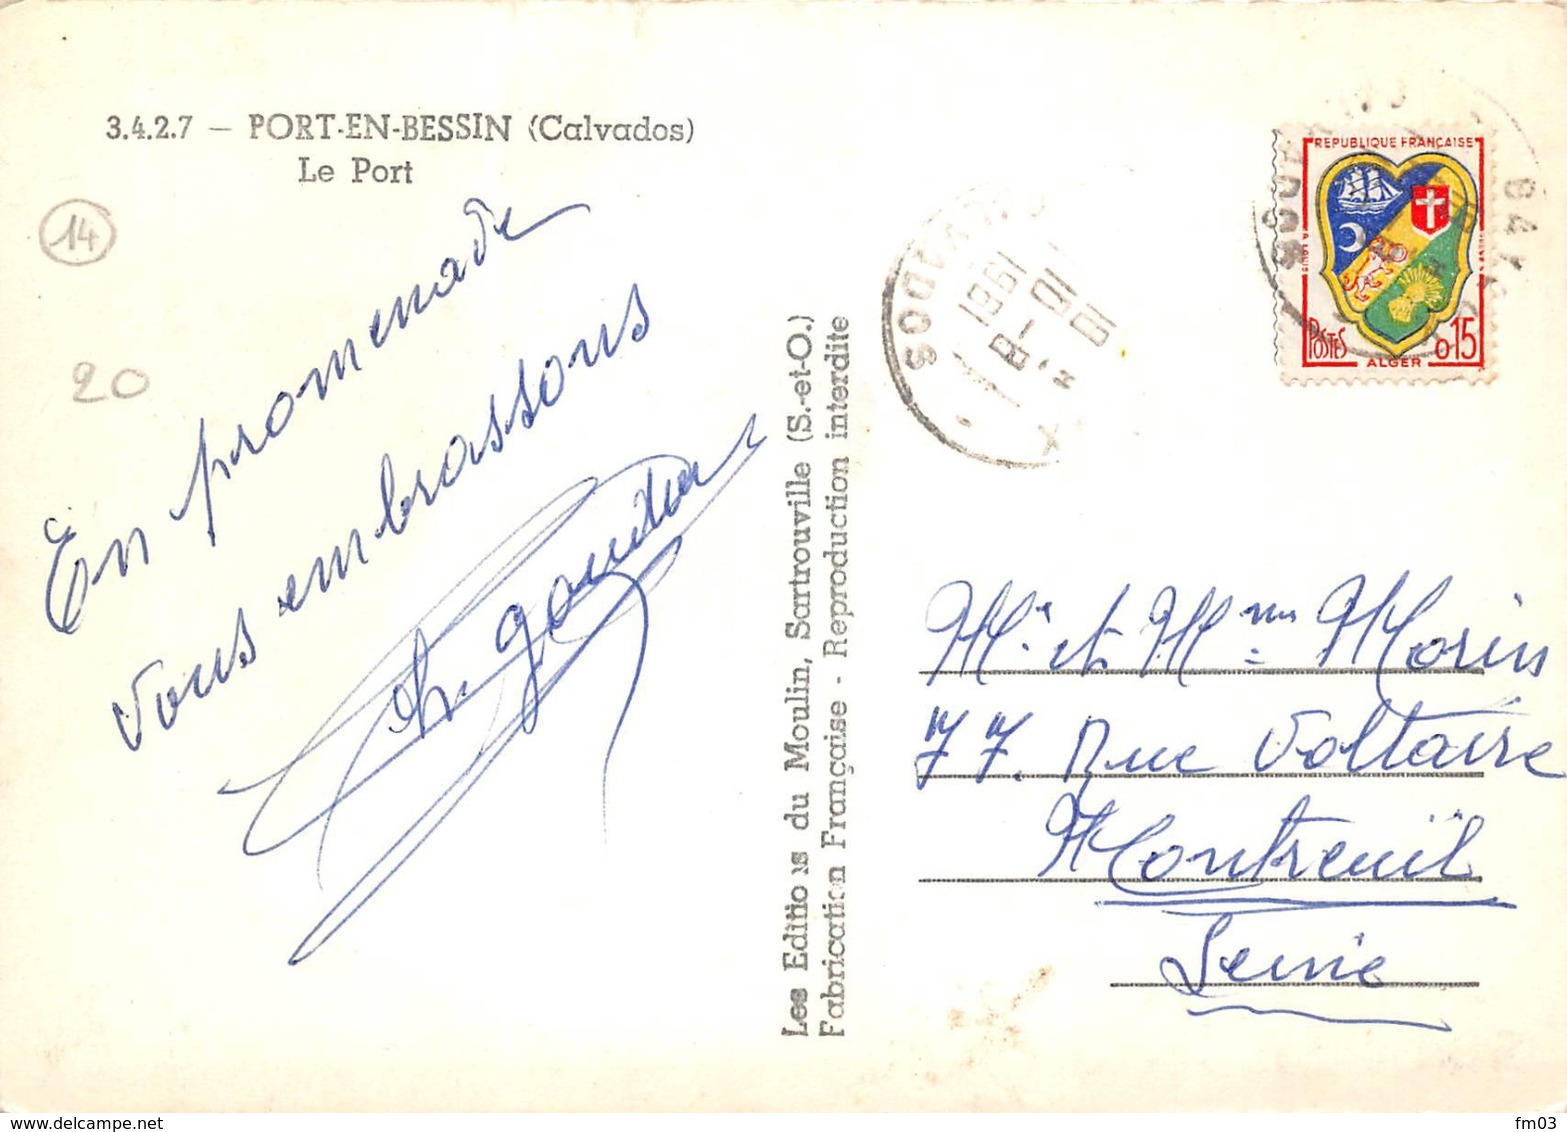 3.4.2.7 — PORT-EN-BESSIN (Calvados)
Le Port
14
20
En promenade
vous embrassons
Ch. Gautier
Les Editio s du Moulin, Sartrouville (S.-et-O.)
Fabrication Française - Reproduction interdite
CALVADOS
1961
REPUBLIQUE FRANÇAISE
POSTES
ALGER
0,15
Mr. et Mme Morin
77. Rue Voltaire
Montreuil
Seine
www.delcampe.net
fm03